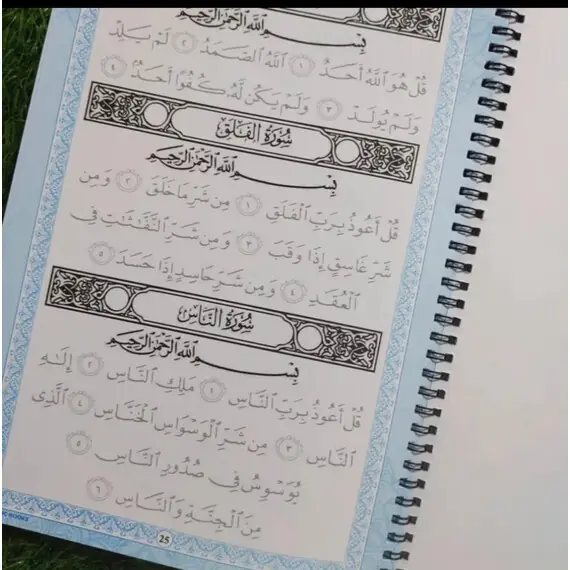 بِسْمِ اللَّهِ الرَّحْمَٰنِ الرَّحِيمِ
قُلْ هُوَ ٱللَّهُ أَحَدٌ ١ ٱللَّهُ ٱلصَّمَدُ ٢ لَمْ يَلِدْ
وَلَمْ يُولَدْ ٣ وَلَمْ يَكُن لَّهُۥ كُفُوًا أَحَدٌۢ ٤
سُورَةُ الفَلَقِ
بِسْمِ اللَّهِ الرَّحْمَٰنِ الرَّحِيمِ
قُلْ أَعُوذُ بِرَبِّ ٱلْفَلَقِ ١ مِن شَرِّ مَا خَلَقَ ٢ وَمِن
شَرِّ غَاسِقٍ إِذَا وَقَبَ ٣ وَمِن شَرِّ ٱلنَّفَّٰثَٰتِ فِى
ٱلْعُقَدِ ٤ وَمِن شَرِّ حَاسِدٍ إِذَا حَسَدَ ٥
سُورَةُ النَّاسِ
بِسْمِ اللَّهِ الرَّحْمَٰنِ الرَّحِيمِ
قُلْ أَعُوذُ بِرَبِّ ٱلنَّاسِ ١ مَلِكِ ٱلنَّاسِ ٢ إِلَٰهِ
ٱلنَّاسِ ٣ مِن شَرِّ ٱلْوَسْوَاسِ ٱلْخَنَّاسِ ٤ ٱلَّذِى
يُوَسْوِسُ فِى صُدُورِ ٱلنَّاسِ ٥
مِنَ ٱلْجِنَّةِ وَٱلنَّاسِ ٦
25